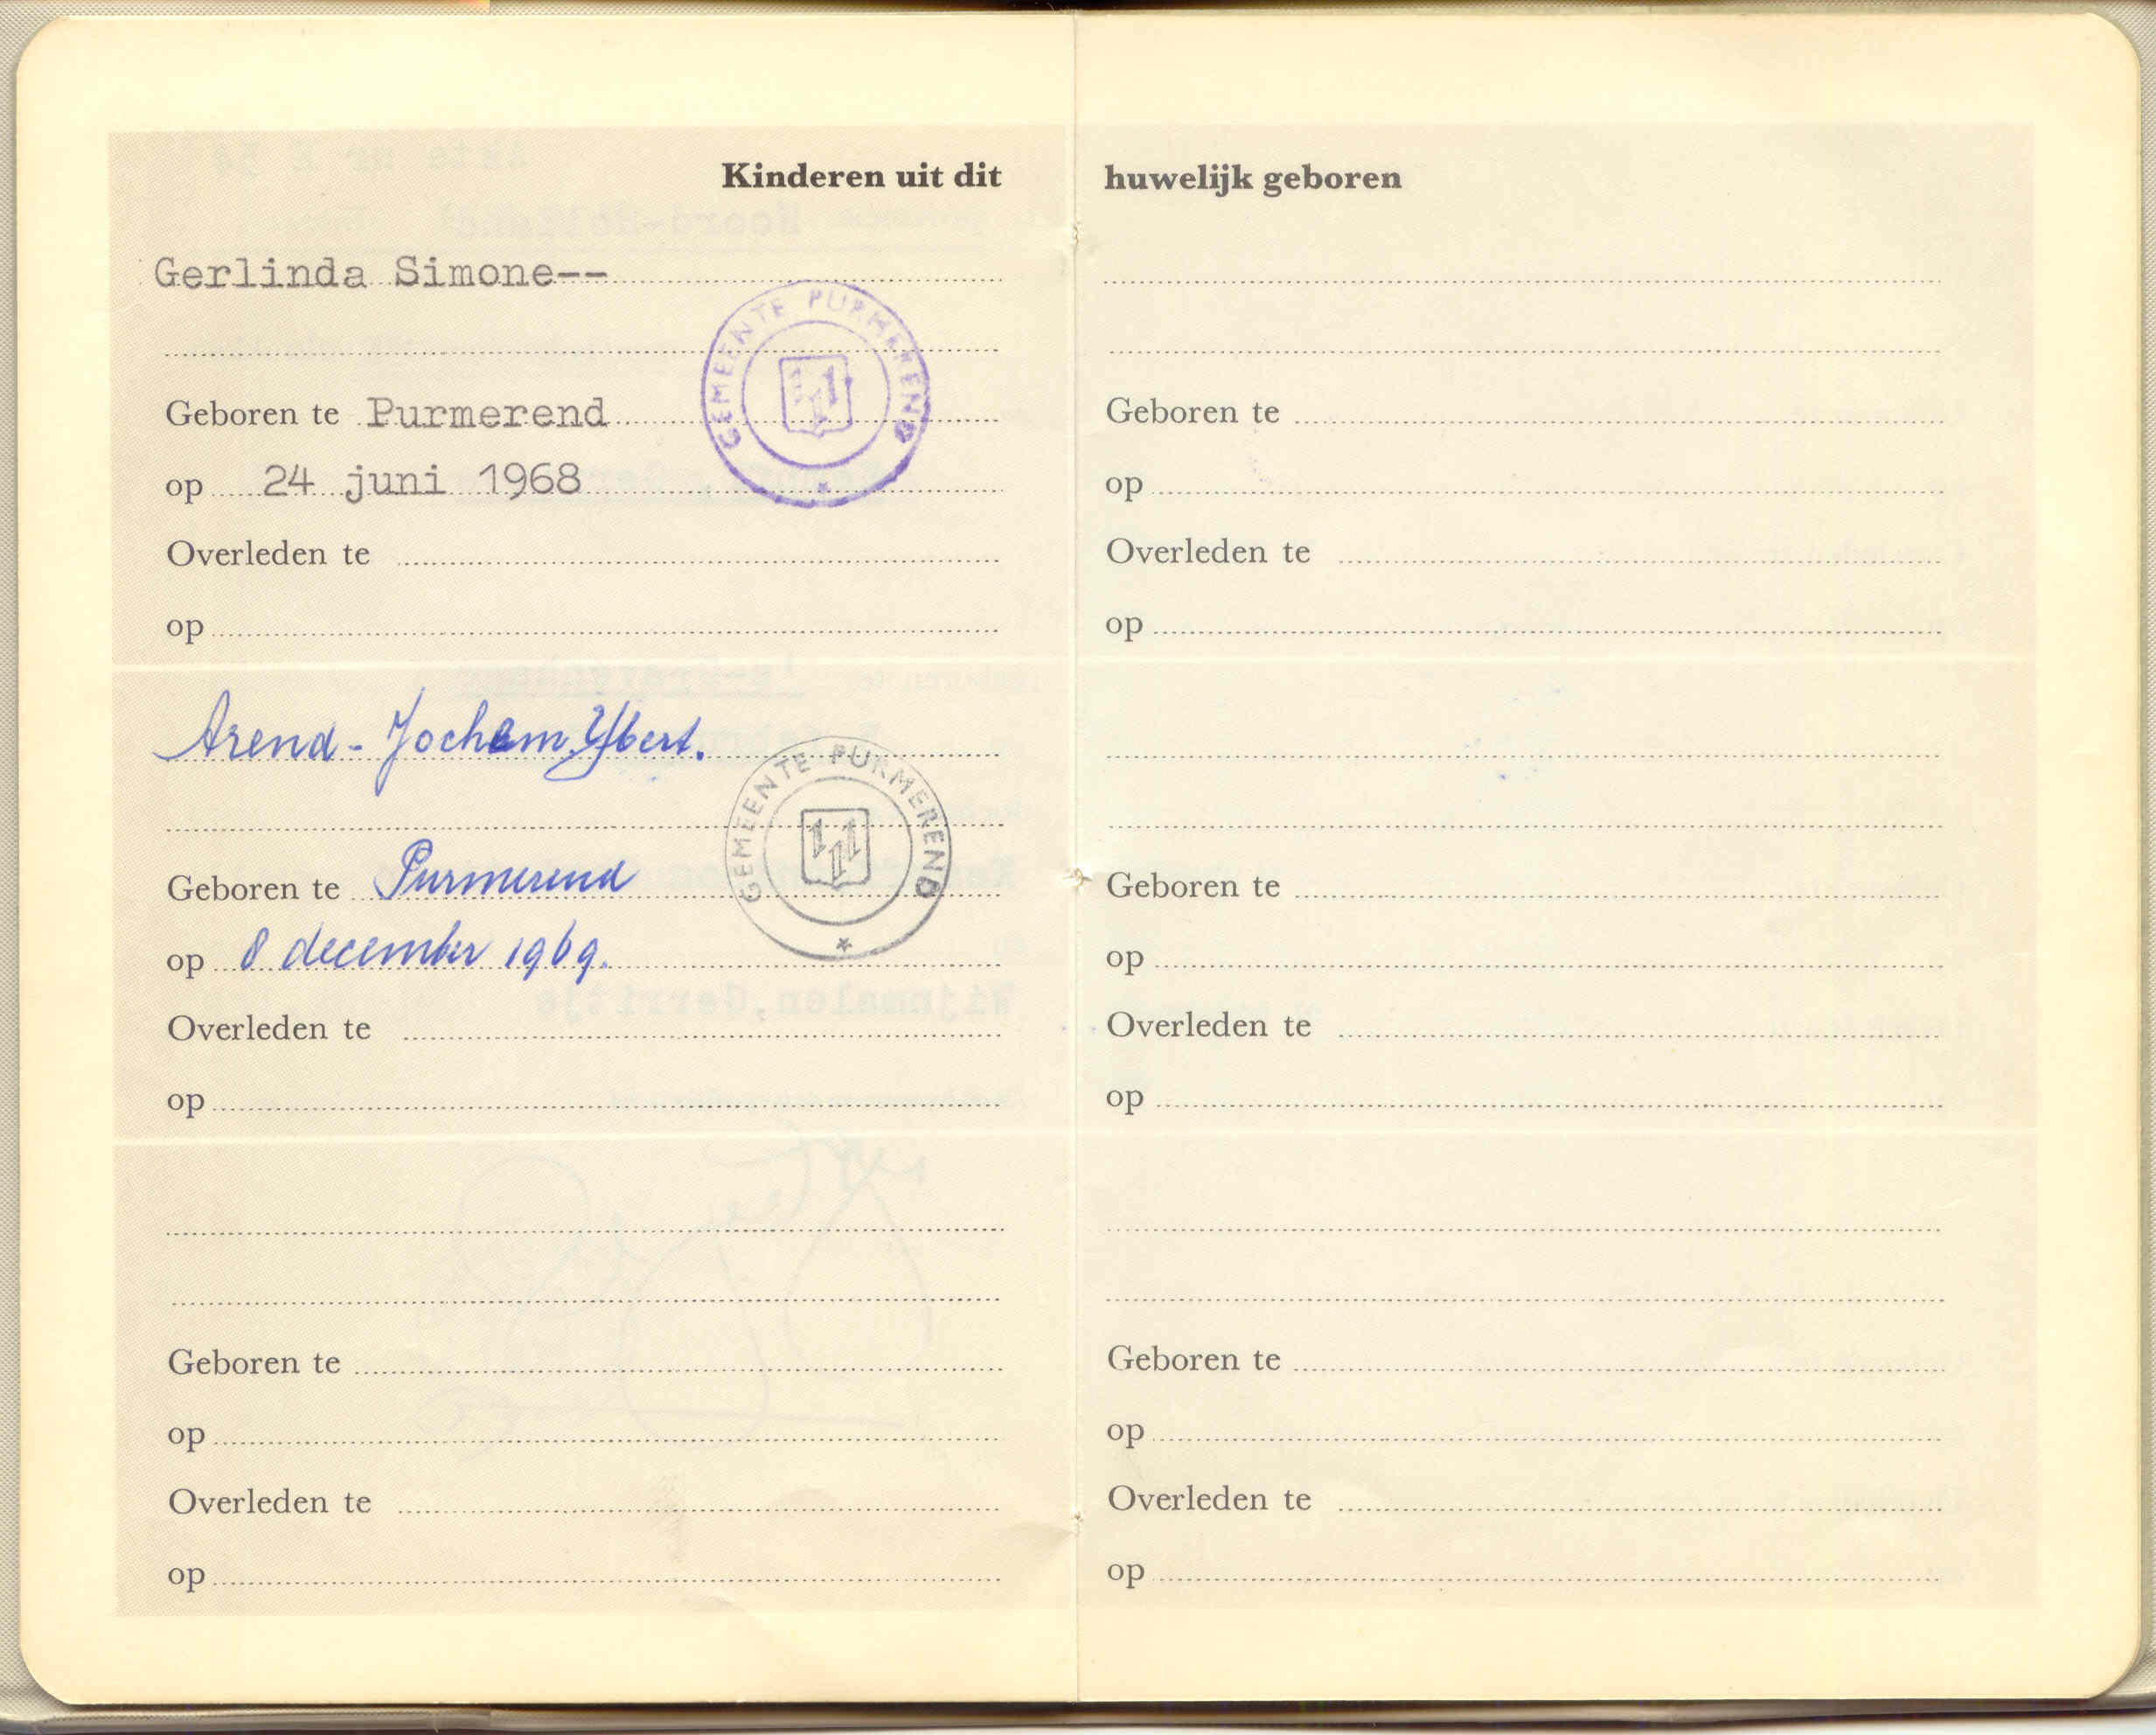 Kinderen uit dit
Gerlinda Simone--
GEMEENTE PURMEREND
Geboren te Purmerend
op 24 juni 1968
Overleden te
op
Arend-Jochem IJbert.
GEMEENTE PURMEREND
Geboren te Purmerend
op 8 december 1969.
Overleden te
op
Geboren te
op
Overleden te
op
huwelijk geboren
Geboren te
op
Overleden te
op
Geboren te
op
Overleden te
op
Geboren te
op
Overleden te
op